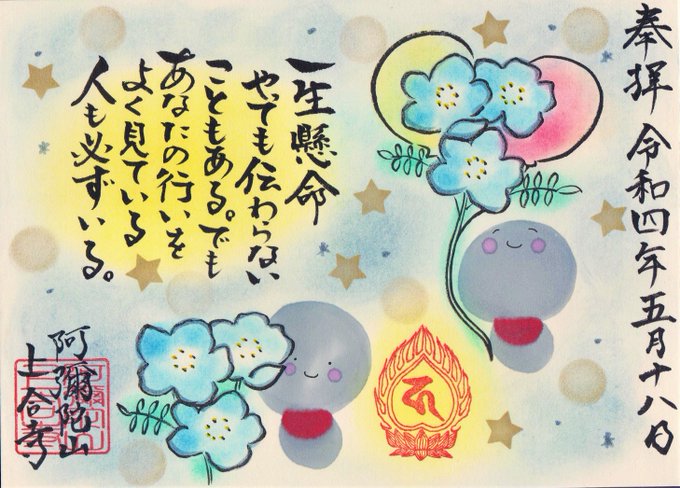 奉拝 令和四年五月十八日
一生懸命
やっても伝わらない
こともある。でも
あなたの行いを
よく見ている
人も必ずいる。
阿彌陀山
上合寺